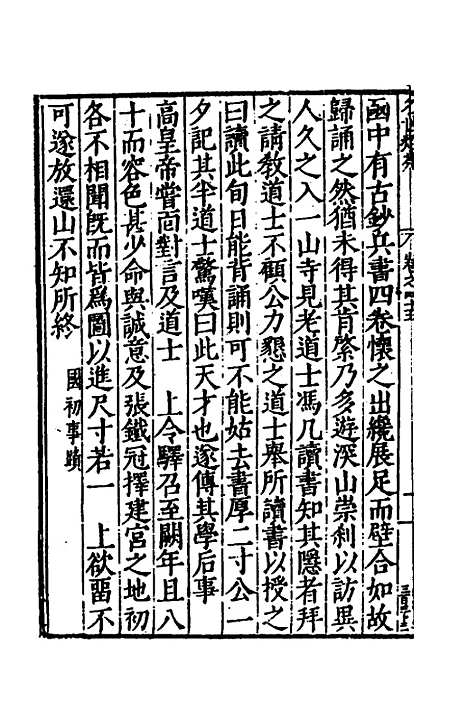 函中有古鈔兵書四卷懷之出纔展足而壁合如故
歸誦之然猶未得其肯綮乃多遊深山崇刹以訪異
人久之入一山寺見老道士馮几讀書知其隱者拜
之請教道士不顧公力懇之道士舉所讀書以授之
曰讀此旬日能背誦則可不能姑去書厚二寸公一
夕記其半道士驚嘆曰此天才也遂傳其學后事
高皇帝嘗面對言及道士　上令驛召至闕年且八
十而容色甚少命與誠意及張鐵冠擇建宮之地初
各不相聞旣而皆爲圖以進尺寸若一　上欲畱不
可遂放還山不知所終
國初事蹟